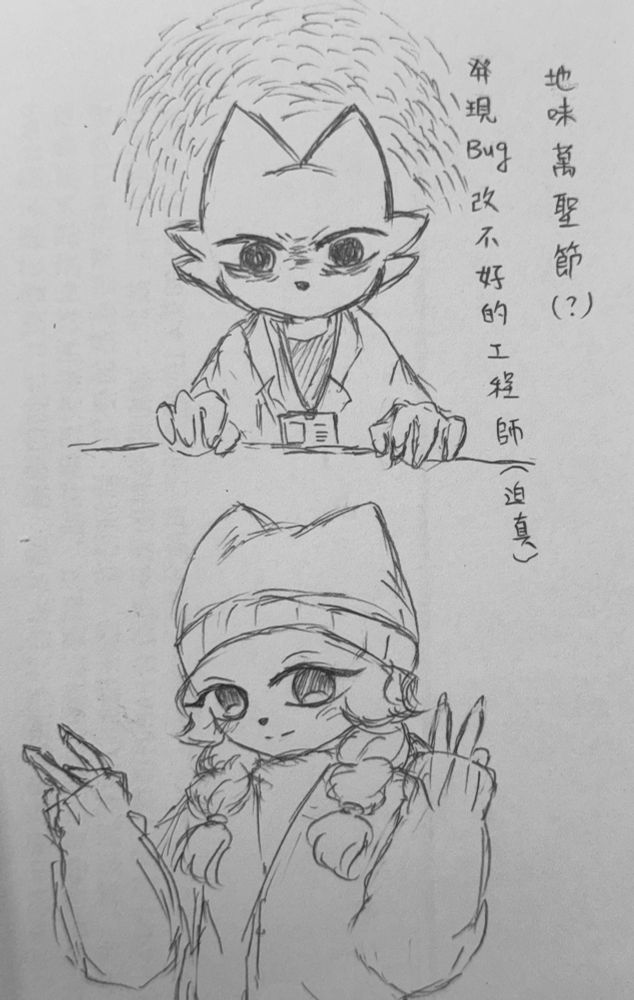 地味萬聖節(?)
發現Bug改不好的工程師(迫真)